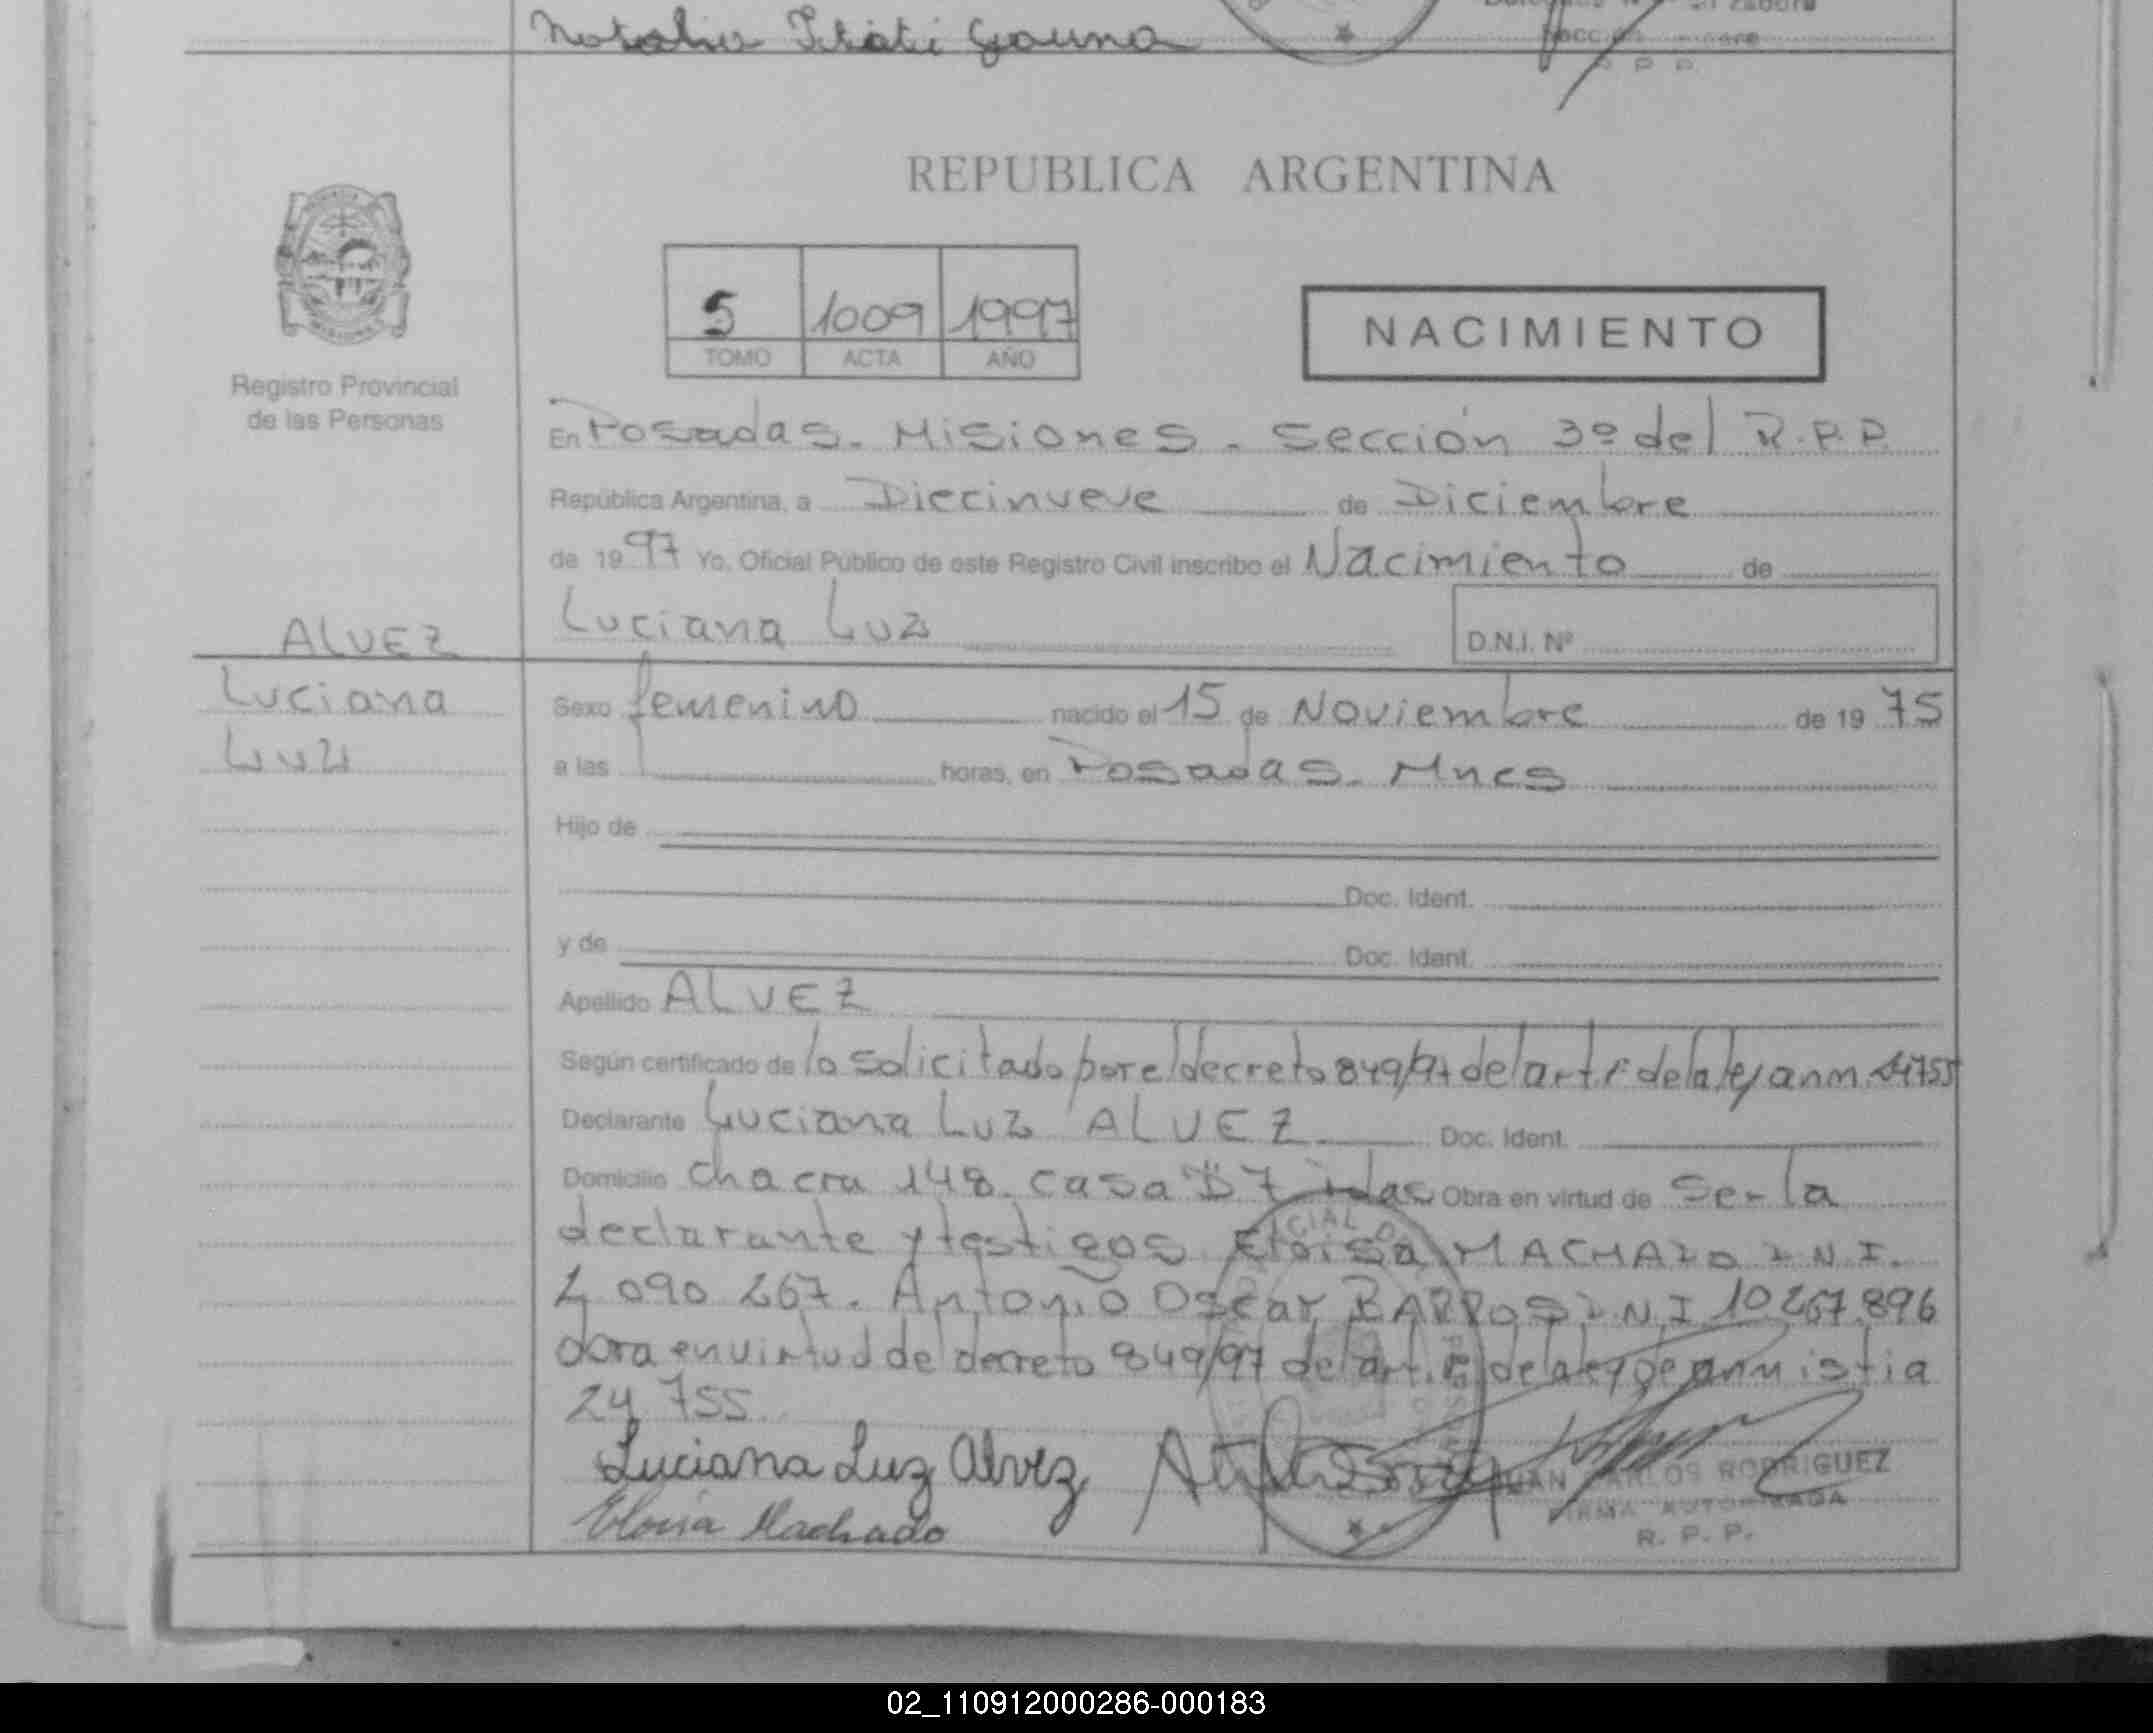 Natalia Itatí Gauna
REPUBLICA ARGENTINA
5 1009 1997
TOMO ACTA AÑO
NACIMIENTO
Registro Provincial
de las Personas
En Posadas. Misiones. Sección 3º del R.P.P.
República Argentina, a Diecinueve de Diciembre
de 1997 Yo, Oficial Público de este Registro Civil inscribo el Nacimiento de
Luciana Luz D.N.I. Nº
ALVEZ
Luciana
Luz
Sexo femenino nacido el 15 de Noviembre de 1975
a las horas, en Posadas. Mnes
Hijo de
Doc. Ident.
y de Doc. Ident.
Apellido ALVEZ
Según certificado de lo solicitado por el decreto 849/97 del art 1º de la ley anm. 24755
Declarante Luciana Luz ALVEZ Doc. Ident.
Domicilio Chacra 148. casa 7 Pdas Obra en virtud de Ser la
declarante y testigos Eloisa MACHADO D.N.I.
090 267. Antonio Oscar BARROS D.N.I 10 267.896
obra en virtud del decreto 849/97 del art. 1º de la ley de amnistia
24 755
Luciana Luz Alvez
Eloisa Machado
JUAN CARLOS RODRIGUEZ
FIRMA AUTORIZADA
R. P. P.
02_110912000286-000183